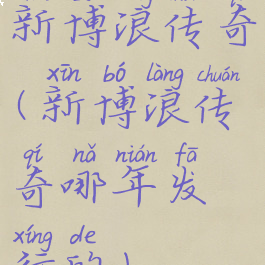 新博浪传奇
xīn bó làng chuán
(新博浪传
qí nǎ nián fā
奇哪年发
xíng de
行的)